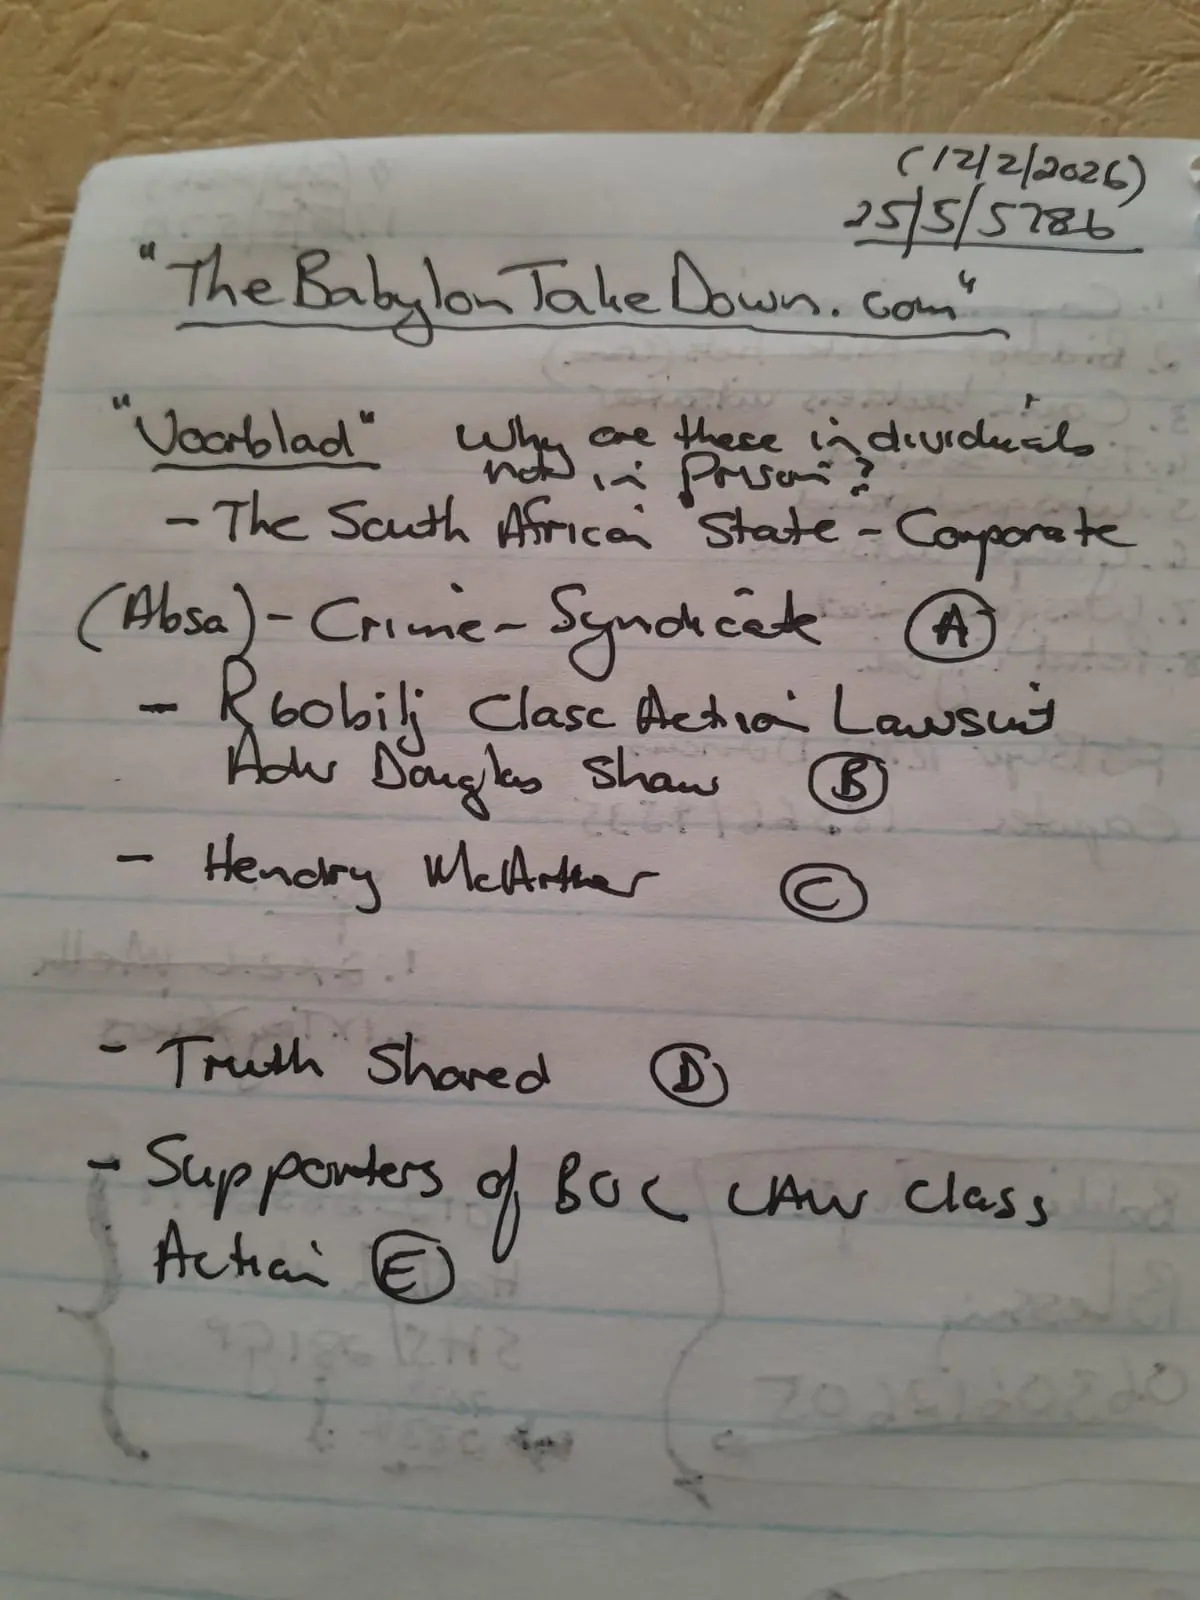 (12/2/2026)
25/5/5786
"The Babylon Take Down.com"
"Voorblad" Why are these individuals
not in prison?
- The South African State - Corporate
(Absa) - Crime - Syndicate (A)
- R60bilj Class Action Lawsuit
Adv Douglas Shaw (B)
- Hendry McArther (C)
- Truth Shared (D)
- Supporters of BOC LAW Class
Action (E)